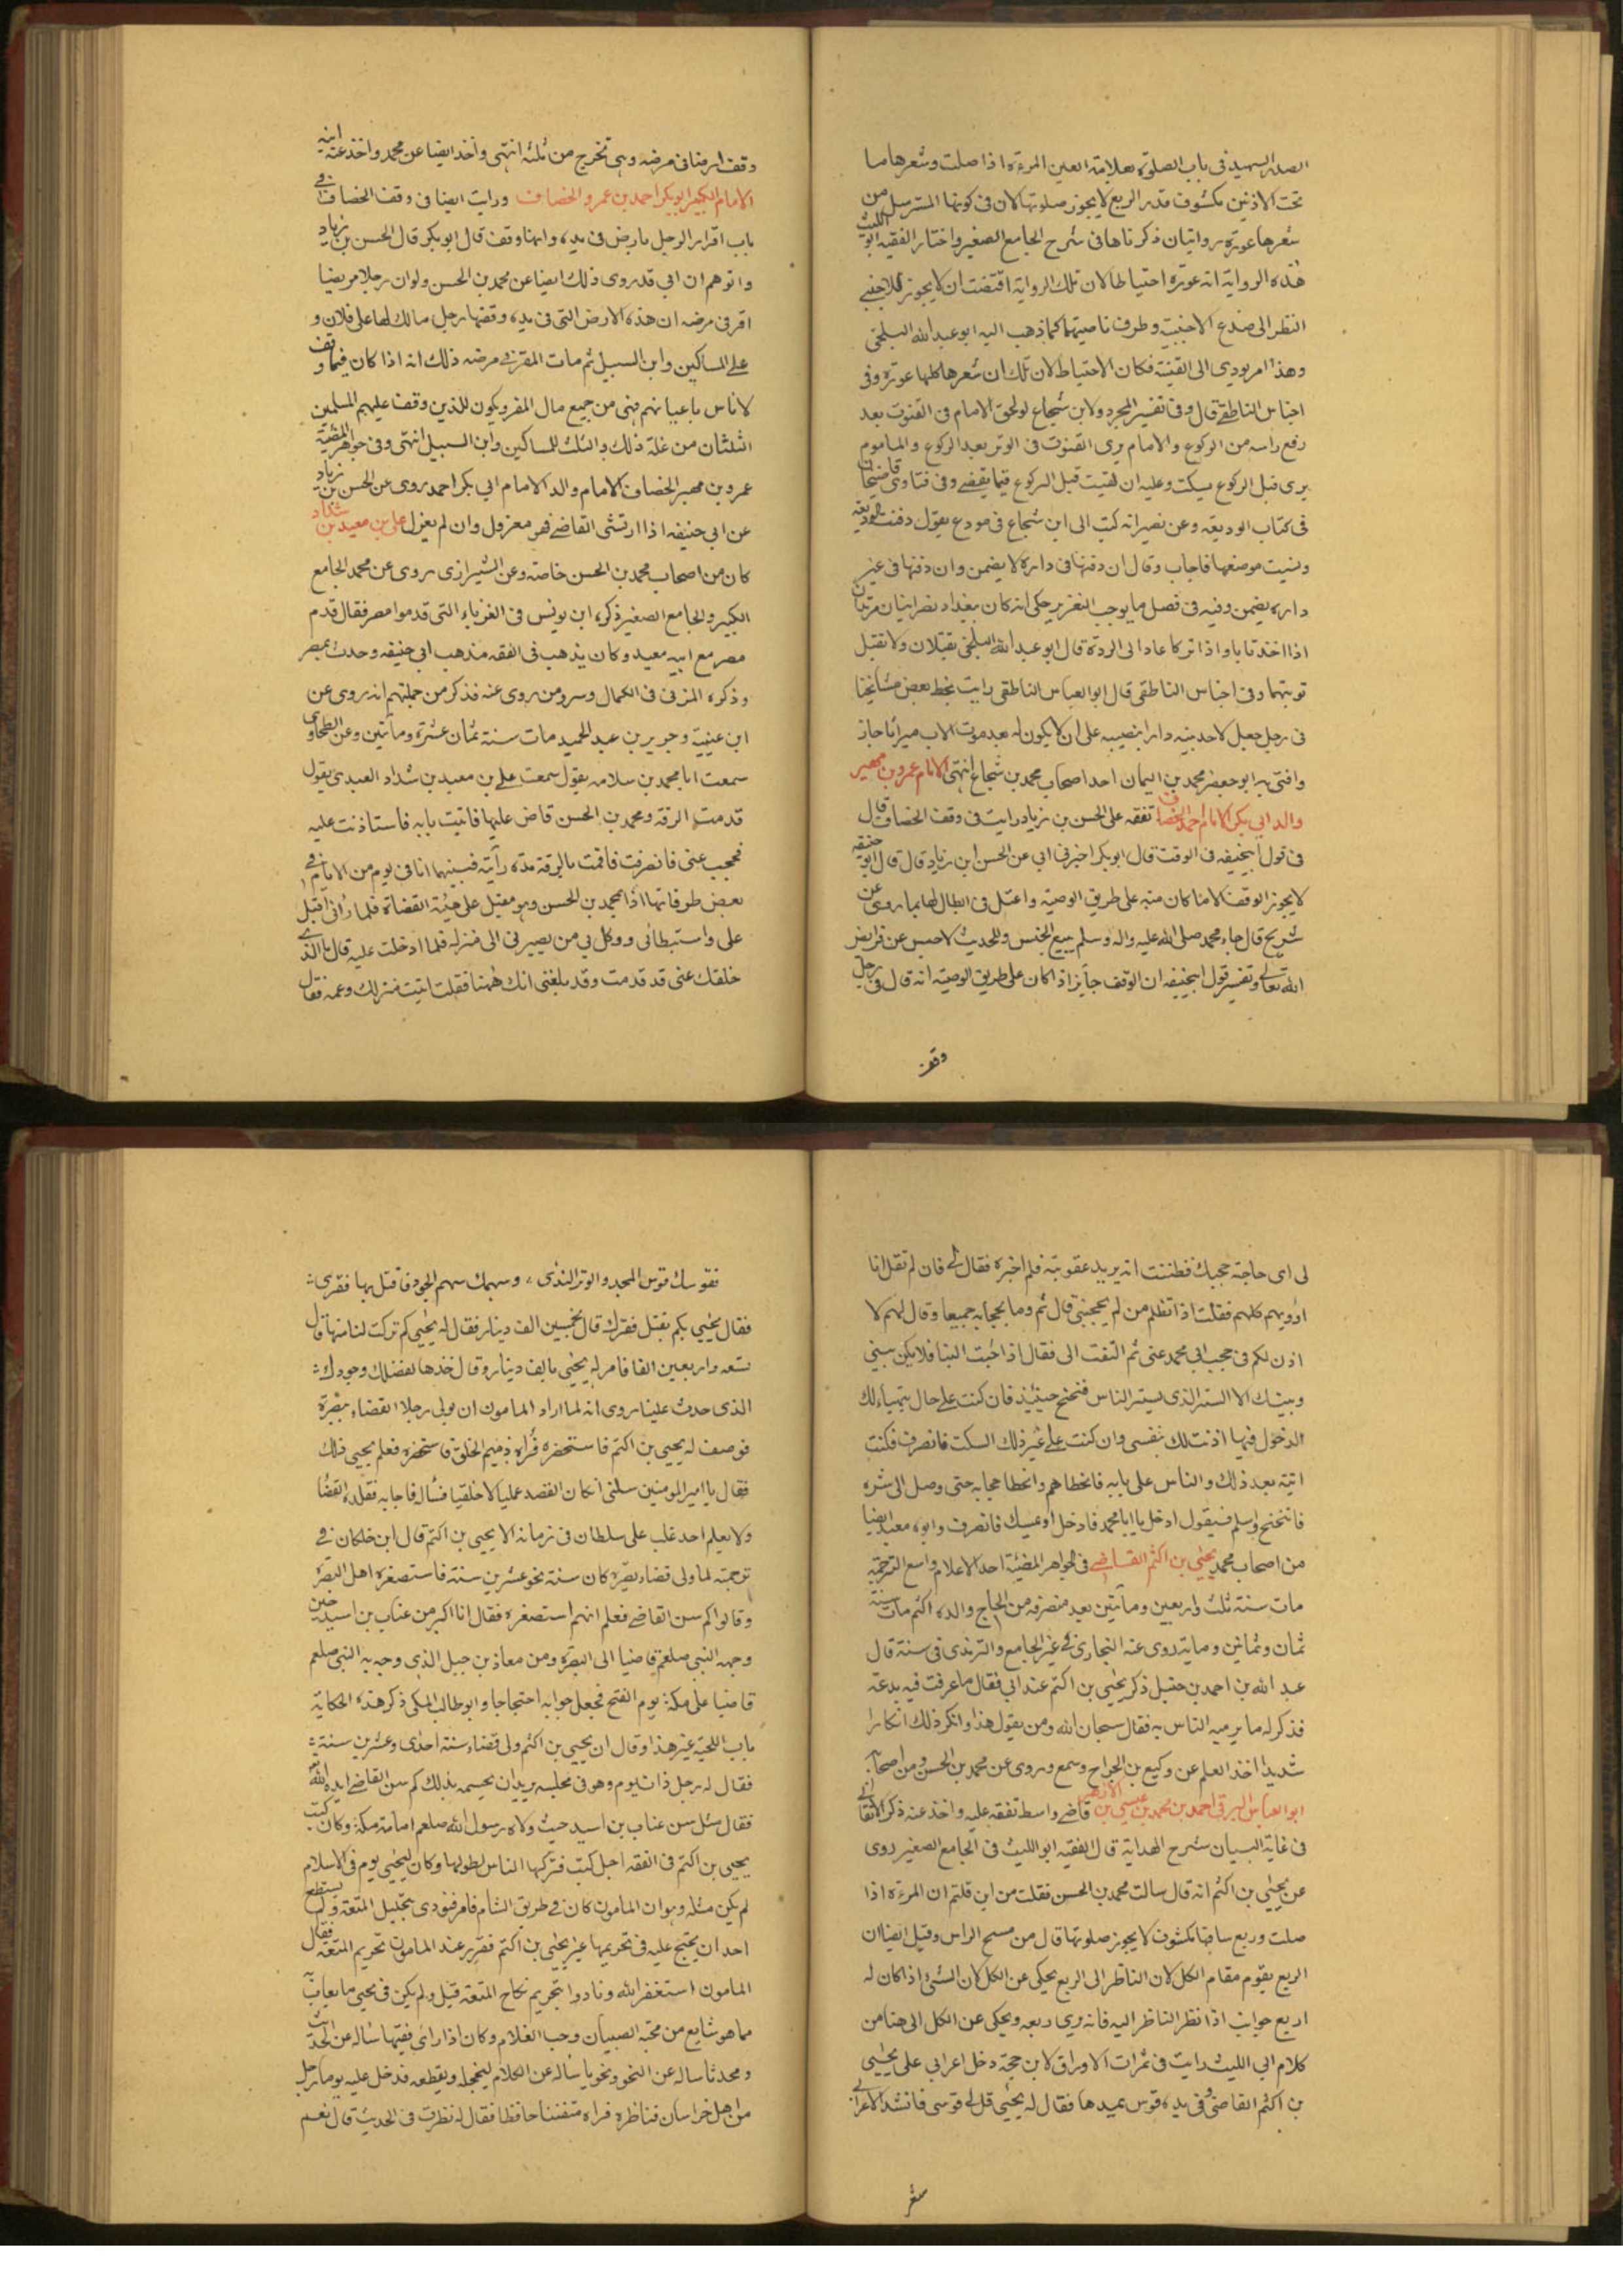 الصدر الشهيد فى باب الصلوة بعلامة العين المرءة اذا صلت وشعرها ما
تحت الاذنين مكشوف قدر الربع لا يجوز صلوتها لان فى كونها المسترسل من
شعرها عورة روايتان ذكرناها فى شرح الجامع الصغير واختار الفقيه ابو الليث
هذه الرواية انه عورة احتياطا لان تلك الرواية اقتضت ان لا يجوز للاجنبى
النظر الى صدغ الاجنبية وطرف ناصيتها كما ذهب اليه ابو عبد الله البلخى
وهذا امر يودى الى الفتنة فكان الاحتياط لان تلك ان شعرها كلها عورة وفى
اجناس الناطقى قال وفى تفسير المجرد ولابن شجاع لو لحق الامام فى القنوت بعد
رفع راسه من الركوع والامام يرى القنوت فى الوتر بعد الركوع والماموم
يرى قبل الركوع يسكت وعليه ان يقنت قبل الركوع فيما يقضى وفى فتاوى قاضيخان
فى كتاب الوديعة وعن نصير انه كتب الى ابن شجاع فى مودع يقول دفنت الوديعة
ونسيت موضعها فاجاب وقال ان دفنها فى داره لا يضمن وان دفنها فى غير
داره يضمن وفيه فى فصل ما يوجب التعزير حكى انه كان ببغداد نصرانيان مرتدان
اذا اخذ تابا واذا تركا عادا الى الردة قال ابو عبد الله البلخى يقتلان ولا تقبل
توبتهما وفى اجناس الناطقى قال ابو العباس الناطقى رايت بخط بعض مشايخنا
فى رجل جعل لاحد بنيه دارا بنصيبه على ان لا يكون له بعد موت الاب ميراثا جاز
وافتى به ابو جعفر محمد بن اليمان احد اصحاب محمد بن شجاع انتهى الامام عمرو بن مهير
والد ابى بكر الامام احمد الخصاف تفقه على الحسن بن زياد رايت فى وقف الخصاف قال
فى قول ابيحنيفه فى الوقف قال ابو بكر اخبرنى ابى عن الحسن ابن زياد قال قال ابو حنيفه
لا يجوز الوقف الا ما كان منه على طريق الوصية واعتل فى ابطال لها بما روى عن
شريح قال جاء محمد صلى الله عليه واله وسلم ببيع الحبس وللحديث لا حبس عن فرايض
الله تعالى وتفسير قول ابيحنيفه ان الوقف جايز اذا كان على طريق الوصية انه قال فى رجل
وقف
وقف ارضا فى مرضه وهى تخرج من ثلثه انتهى واخذ ايضا عن محمد واخذ عنه ابنه
الامام الكبير ابو بكر احمد بن عمرو الخصاف ورايت ايضا فى وقف الخصاف فى
باب اقرار الرجل بارض فى يده وانها وقف قال ابو بكر قال الحسن بن زياد
واتوهم ان ابى قد روى ذلك ايضا عن محمد بن الحسن ولو ان رجلا مريضا
اقر فى مرضه ان هذه الارض التى فى يده وقفها رجل مالك لها على فلان و
على المساكين وابن السبيل ثم مات المقر فى مرضه ذلك انه اذا كان فيما وقف
لاناس باعيانهم فهى من جميع مال المقر ويكون للذين وقف عليهم المسلمين
الثلثان من غلة ذلك والثلث للمساكين وابن السبيل انتهى وفى جواهر المضية
عمرو بن مهير الخصاف الامام والد الامام ابى بكر احمد روى عن الحسن بن زياد
عن ابى حنيفه اذا ارتشى القاضى فهو معزول وان لم يعزل على بن معبد بن شداد
كان من اصحاب محمد بن الحسن خاصة وعن الشيرازى روى عن محمد الجامع
الكبير والجامع الصغير ذكره ابن يونس فى الغرباء التى قدموا مصر فقال قدم
مصر مع ابيه معبد وكان يذهب فى الفقه مذهب ابى حنيفه وحدث بمصر
وذكره المزنى فى الكمال وسرو من روى عنه فذكر من جملتهم انه روى عن
ابن عيينة وجرير بن عبد الحميد مات سنة ثمان عشرة ومأتين وعن الطحاوى
سمعت ابا محمد بن سلامه يقول سمعت على بن معبد بن شداد العبدى يقول
قدمت الرقة ومحمد بن الحسن قاض عليها فاتيت بابه فاستاذنت عليه
فحجب عنى فانصرفت فاقمت بالرقة مدة رآيته فبينهما انا فى يوم من الايام فى
بعض طرقاتها اذا محمد بن الحسن وهو مقبل على هيئة القضاة فلما رأنى اقبل
على واستبطانى ووكل بى من يصيرنى الى منزله فلما ادخلت عليه قال ما الذى
خلفك عنى قد قدمت وقد بلغنى انك ههنا فقلت اتيت منزلك وعمه فقال
لى اى حاجة حجبك فظننت انه يريد عقوبته فلم اخبره فقال لى فان لم تقل انا
اؤويهم كلهم فقلت اذا تظلم من لم يحجبنى قال ثم وما بحجابه جميعا وقال لهم لا
اذن لكم فى حجب ابى محمد عنى ثم التفت الى فقال اذا جئت الينا فلا يكن بينى
وبينك الا الستر الذى يستر الناس فتنحنح حينئذ فان كنت على حال يتهياء لك
الدخول فيها اذنت لك بنفسى وان كنت على غير ذلك السكت فانصرف فكنت
اتيته بعد ذلك والناس على بابه فاتخطاهم واتخطا حجابه حتى وصل الى ستره
فاتنحنح واسلم فيقول ادخل يا ابا محمد فادخل او عسك فانصرف وابوه معبد ايضا
من اصحاب محمد يحيى بن اكثم القاضى فى الجواهر المضيئة احد الاعلام واسع الترجمة
مات سنة ثلث واربعين ومأتين بعد منصرفه من الحاج والده اكثم مات سنة
ثمان وثمانين وماية روى عنه البخارى فى غير الجامع والترمذى فى سنة قال
عبد الله بن احمد بن حنبل ذكر يحيى بن اكثم عند ابى فقال ما عرفت فيه بدعة
فذكر له ما يرميه الناس به فقال سبحان الله ومن يقول هذا وانكر ذلك انكارا
شديدا اخذ العلم عن وكيع بن الجراح وسمع وروى عن محمد بن الحسن ومن اصحابه
ابو العباس البرقى احمد بن محمد بن عيسى بن الازهر قاضى واسط تفقه عليه واخذ عنه ذكر الاتقانى
فى غاية البيان شرح الهداية قال الفقيه ابو الليث فى الجامع الصغير روى
عن يحيى بن اكثم انه قال سالت محمد بن الحسن فقلت من اين قلتم ان المرءة اذا
صلت وربع ساقها مكشوف لا يجوز صلوتها قال من مسح الراس وقيل ايضا ان
الربع يقوم مقام الكل لان الناظر الى الربع يحكى عن الكل لان الشىء اذا كان له
اربع جوانب اذا نظر الناظر اليه فانه يرى ربعه ويحكى عن الكل الى هنا من
كلام ابى الليث رايت فى ثمرات الاوراق لابن حجة دخل اعرابى على يحيى
بن اكثم القاضى وفى يده قوس يميدها فقال له يحيى قل لى قوسى فانشد الاعرابى
شعر
فقوسك قوس المجد والوتر الندى وسهمك سهم الجود فاقتل بها فقرى
فقال يحيى بكم يقتل فقرك قال بخمسين الف دينار فقال له يحيى كم تركت لنا منها قال
تسعه واربعين الفا فامر له يحيى بالف دينار وقال خذها لفضلك وجودك
الذى حدث علينا روى انه لما اراد المامون ان يولى رجلا القضاء ببصرة
فوصف له يحيى بن اكثم فاستحضره فراه ذميم الخلق فاستحقره فعلم يحيى ذلك
فقال يا امير المومنين سلنى ان كان القصد عمليا لا خلقيا فسأله فاجابه فقلده القضا
ولا يعلم احد غلب على سلطان فى زمانه الا يحيى بن اكثم قال ابن خلكان فى
ترجمته لما ولى قضاء بصرة كان سنة نحو عشرين سنة فاستصغره اهل البصرة
وقالوا كم سن القاضى فعلم انهم استصغره فقال انا اكبر من عتاب بن اسيد حين
وجهه النبى صلعم قاضيا الى البصرة ومن معاذ بن جبل الذى وجه به النبى صلعم
قاضيا على مكة يوم الفتح فجعل جوابه احتجاجا وابو طالب المكى ذكر هذه الحكاية
باب اللحية غير هذا وقال ان يحيى بن اكثم ولى قضاء سنة احدى وعشرين سنة
فقال له رجل ذات يوم وهو فى مجلسه يريد ان يحسمه بذلك كم سن القاضى ايده الله
فقال مثل سن عتاب بن اسيد حيث ولاه رسول الله صلعم امامة مكة وكان كتب
يحيى بن اكثم فى الفقه اجل كتب فتركها الناس لطولها وكان ليحيى يوم فى الاسلام
لم يكن مثله وهو ان المامون كان فى طريق الشام فامر فنودى بتحليل المتعة ولم يستطع
احد ان يحتج عليه فى تحريمها غير يحيى بن اكثم فقرر عند المامون تحريم المتعة فقال
المامون استغفر الله ونادوا بتحريم نكاح المتعة قيل ولم يكن فى يحيى ما يعاب به
مما هو شايع من محبة الصبيان وحب الغلام وكان اذا راى فقيها سأله عن الحديث
ومحدثا ساله عن النحو ونحويا سأله عن الكلام ليخجله ويقطعه فدخل عليه يوما رجل
من اهل خراسان فناظره فراه متفننا حافظا فقال له نظرت فى الحديث قال نعم